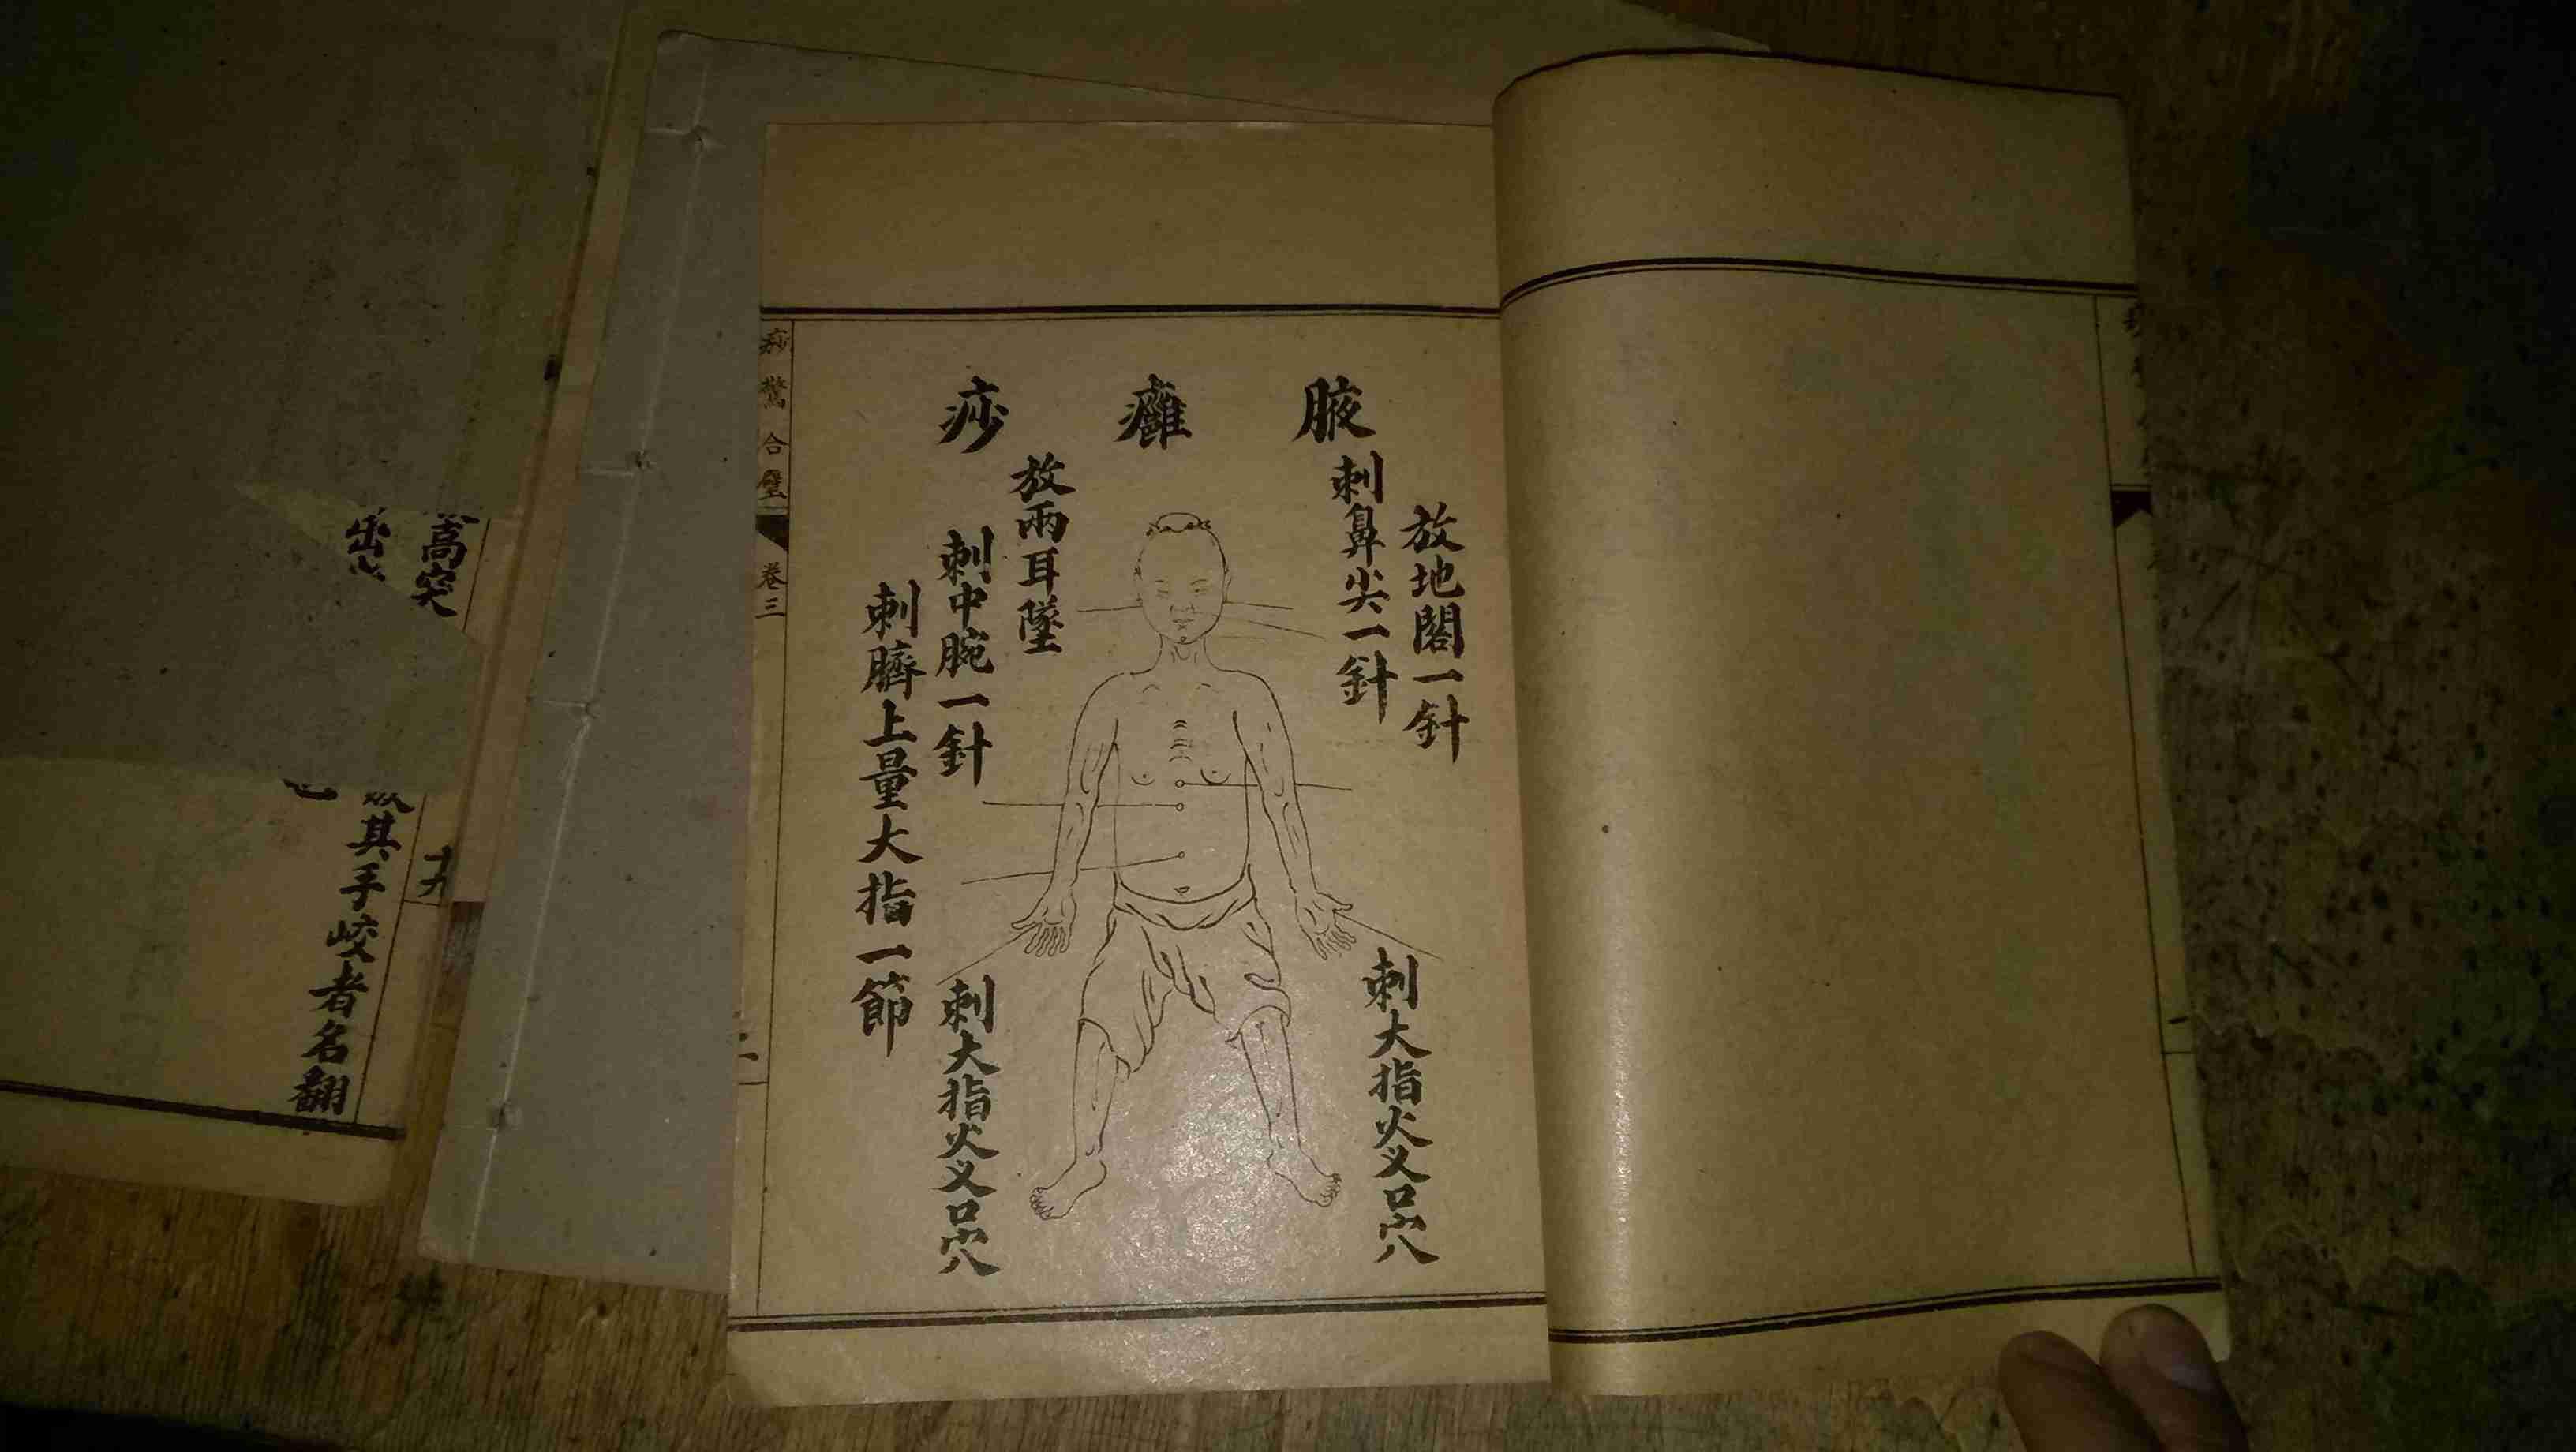 腋癰痧
放地閣一針
刺鼻尖一針
刺大指火义口穴
放兩耳墜
刺中腕一針
刺臍上量大指一節
刺大指火义口穴
痧驚合璧
卷三
高突
出
其手咬者名翻